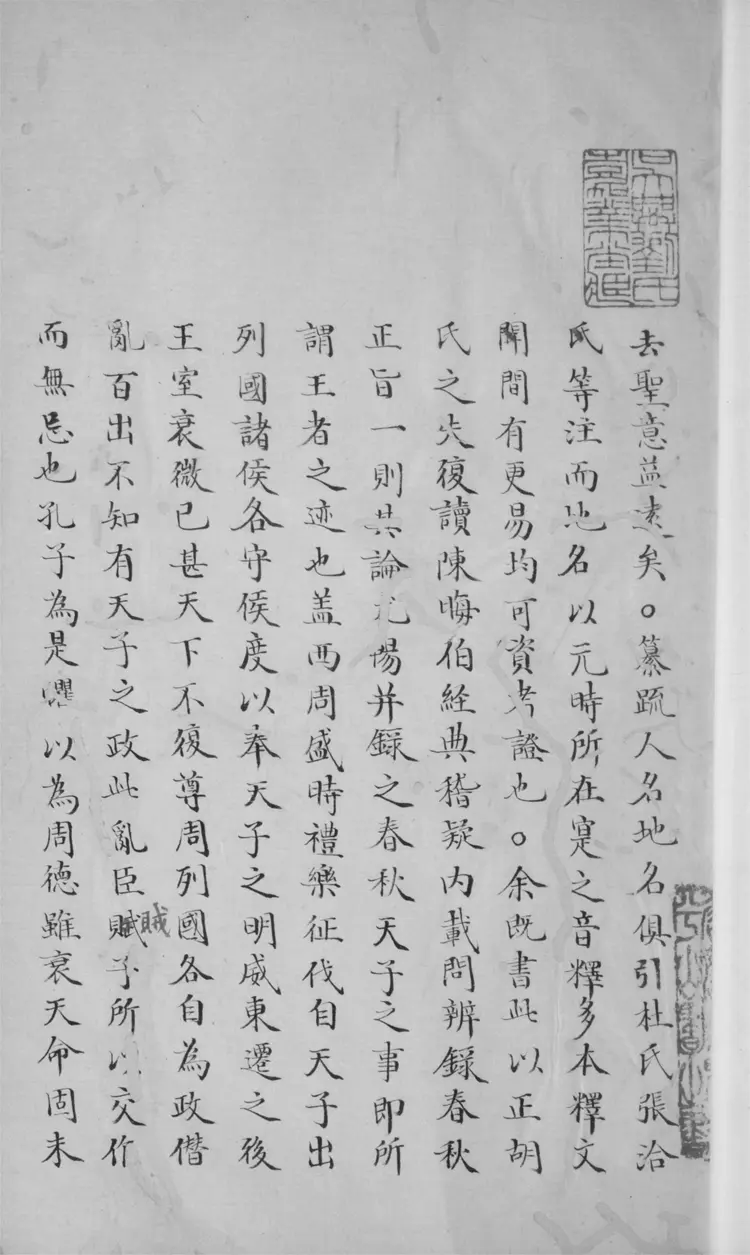 吳興劉氏
嘉業堂藏
去聖意益遠矣。纂疏人名地名俱引杜氏張洽
氏等注而地名以元時所在寔之音釋多本釋文
聞間有更易均可資考證也。余既書此以正胡
氏之失復讀陳晦伯經典稽疑内載問辨錄春秋
正旨一則其論尤暢并錄之春秋天子之事即所
謂王者之迹也盖西周盛時禮樂征伐自天子出
列國諸侯各守侯度以奉天子之明威東遷之後
王室衰微已甚天下不復尊周列國各自為政僣
賊
亂百出不知有天子之政此亂臣賦子所以交作
而無忌也孔子為是懼以為周德雖衰天命固未